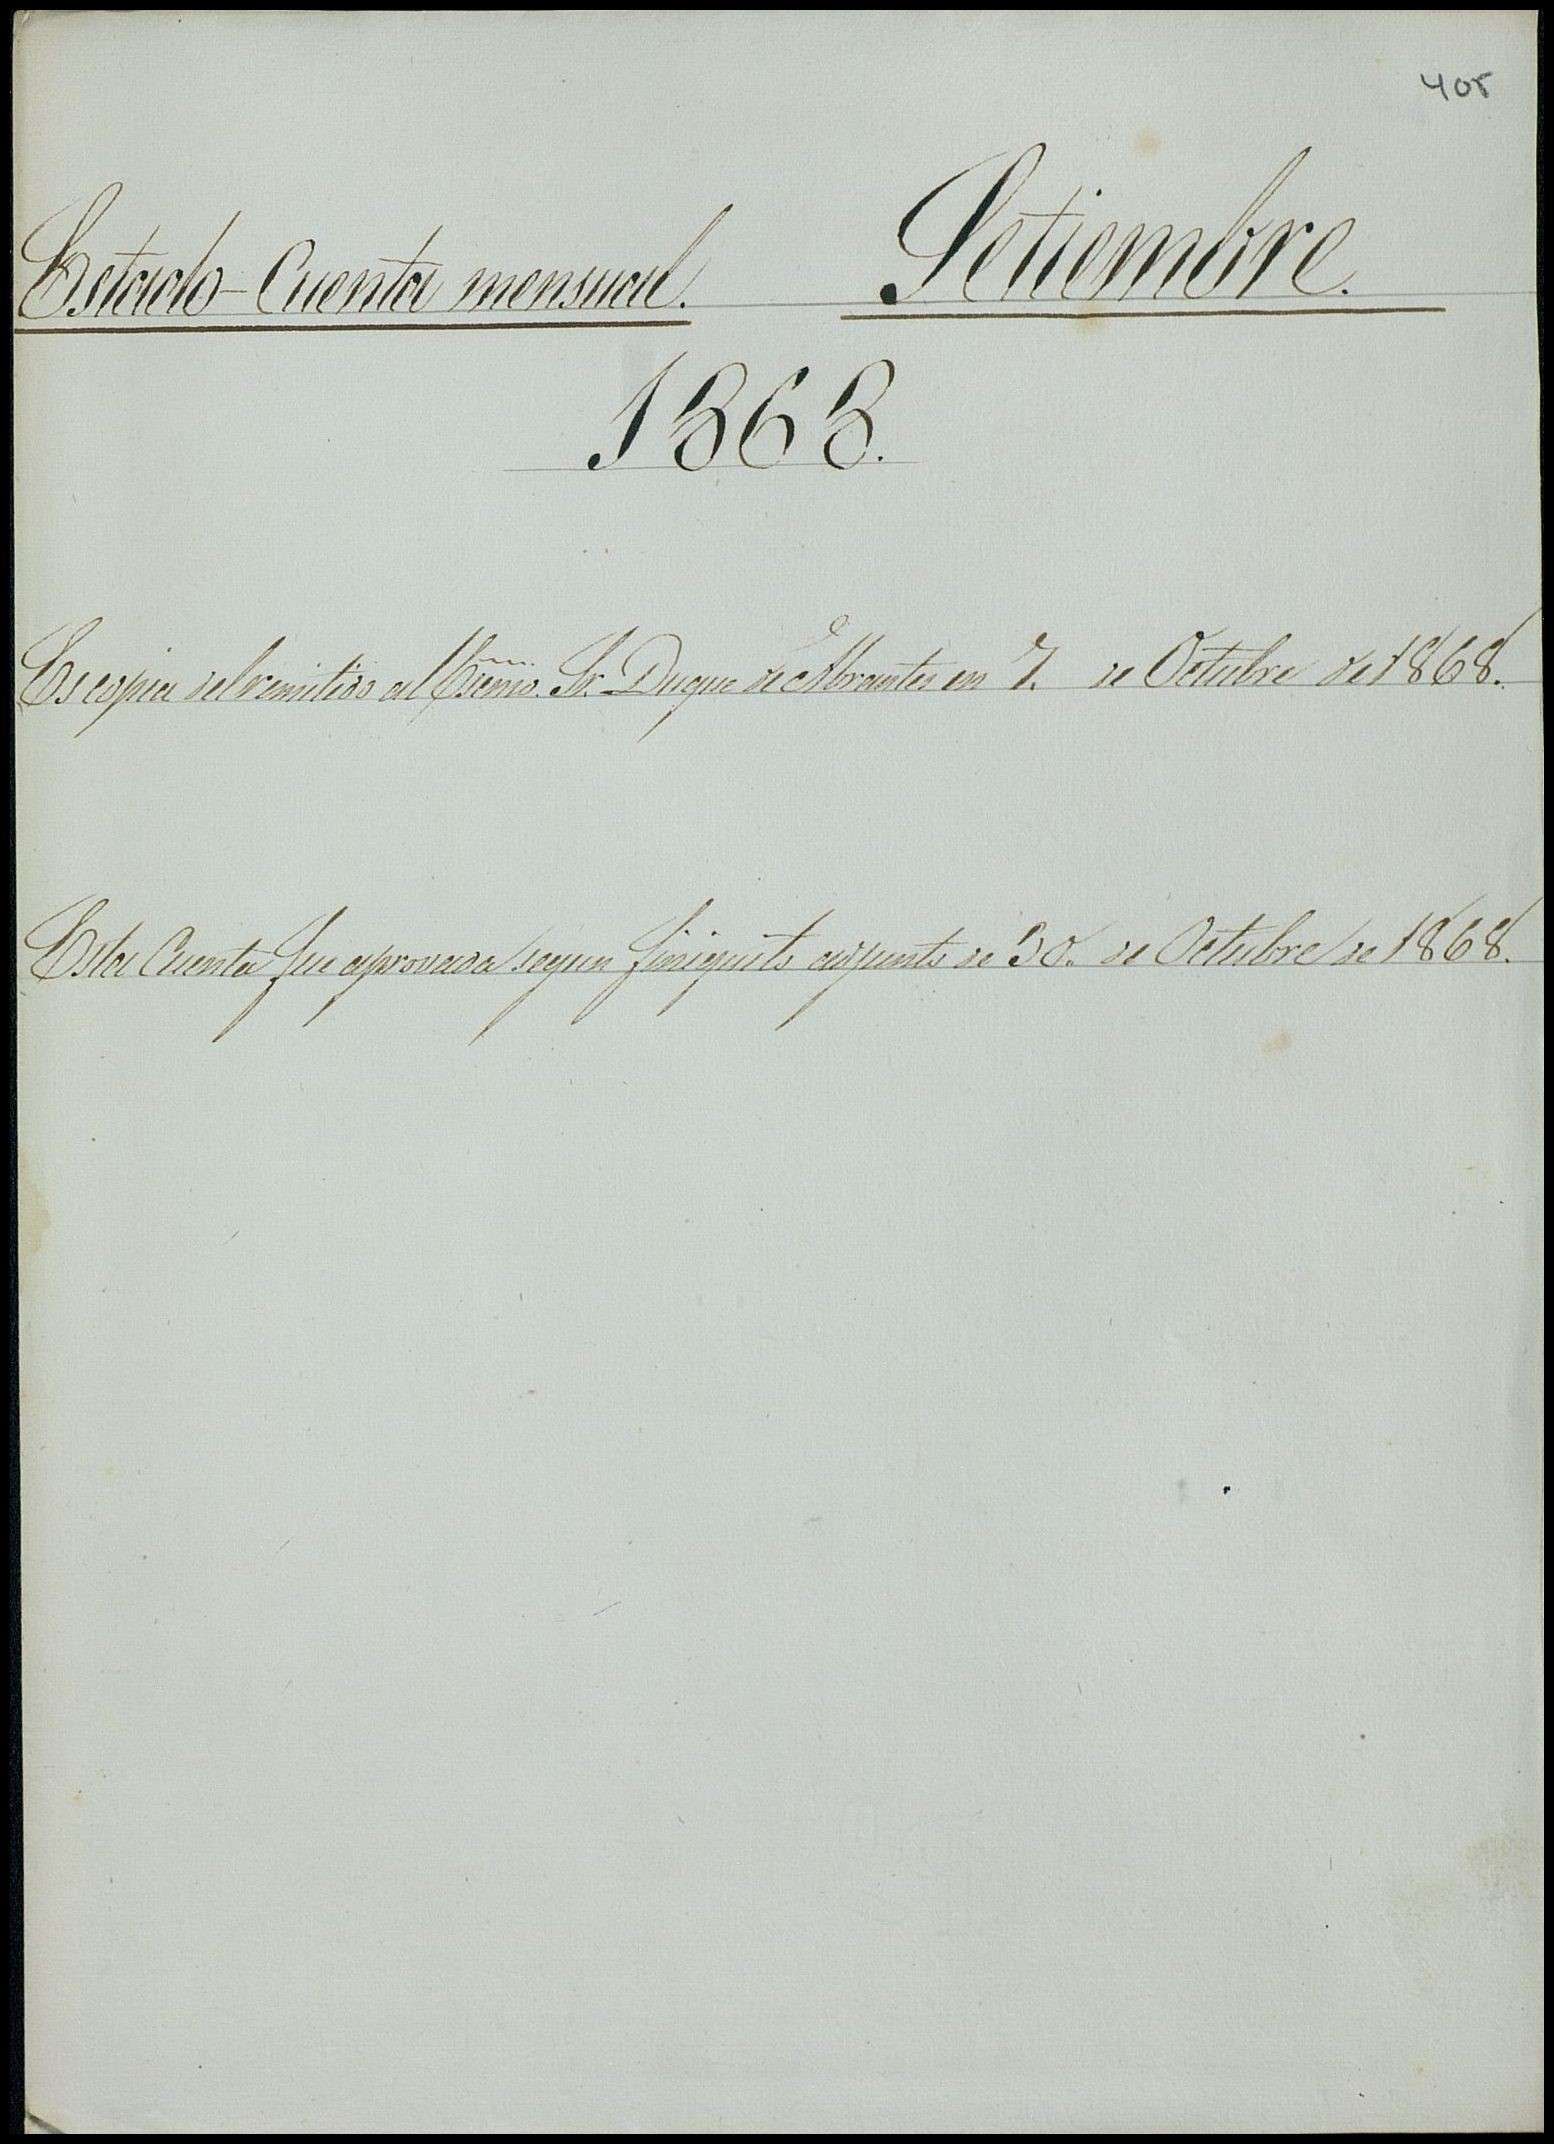 408
Estado-Cuenta mensual. Setiembre.
1868.
Es copia del remitido al Escmo. Sr. Duque de Abrantes en 7. de Octubre de 1868.
Esta Cuenta fue aprovada segun finiquito adjunto de 30. de Octubre de 1868.